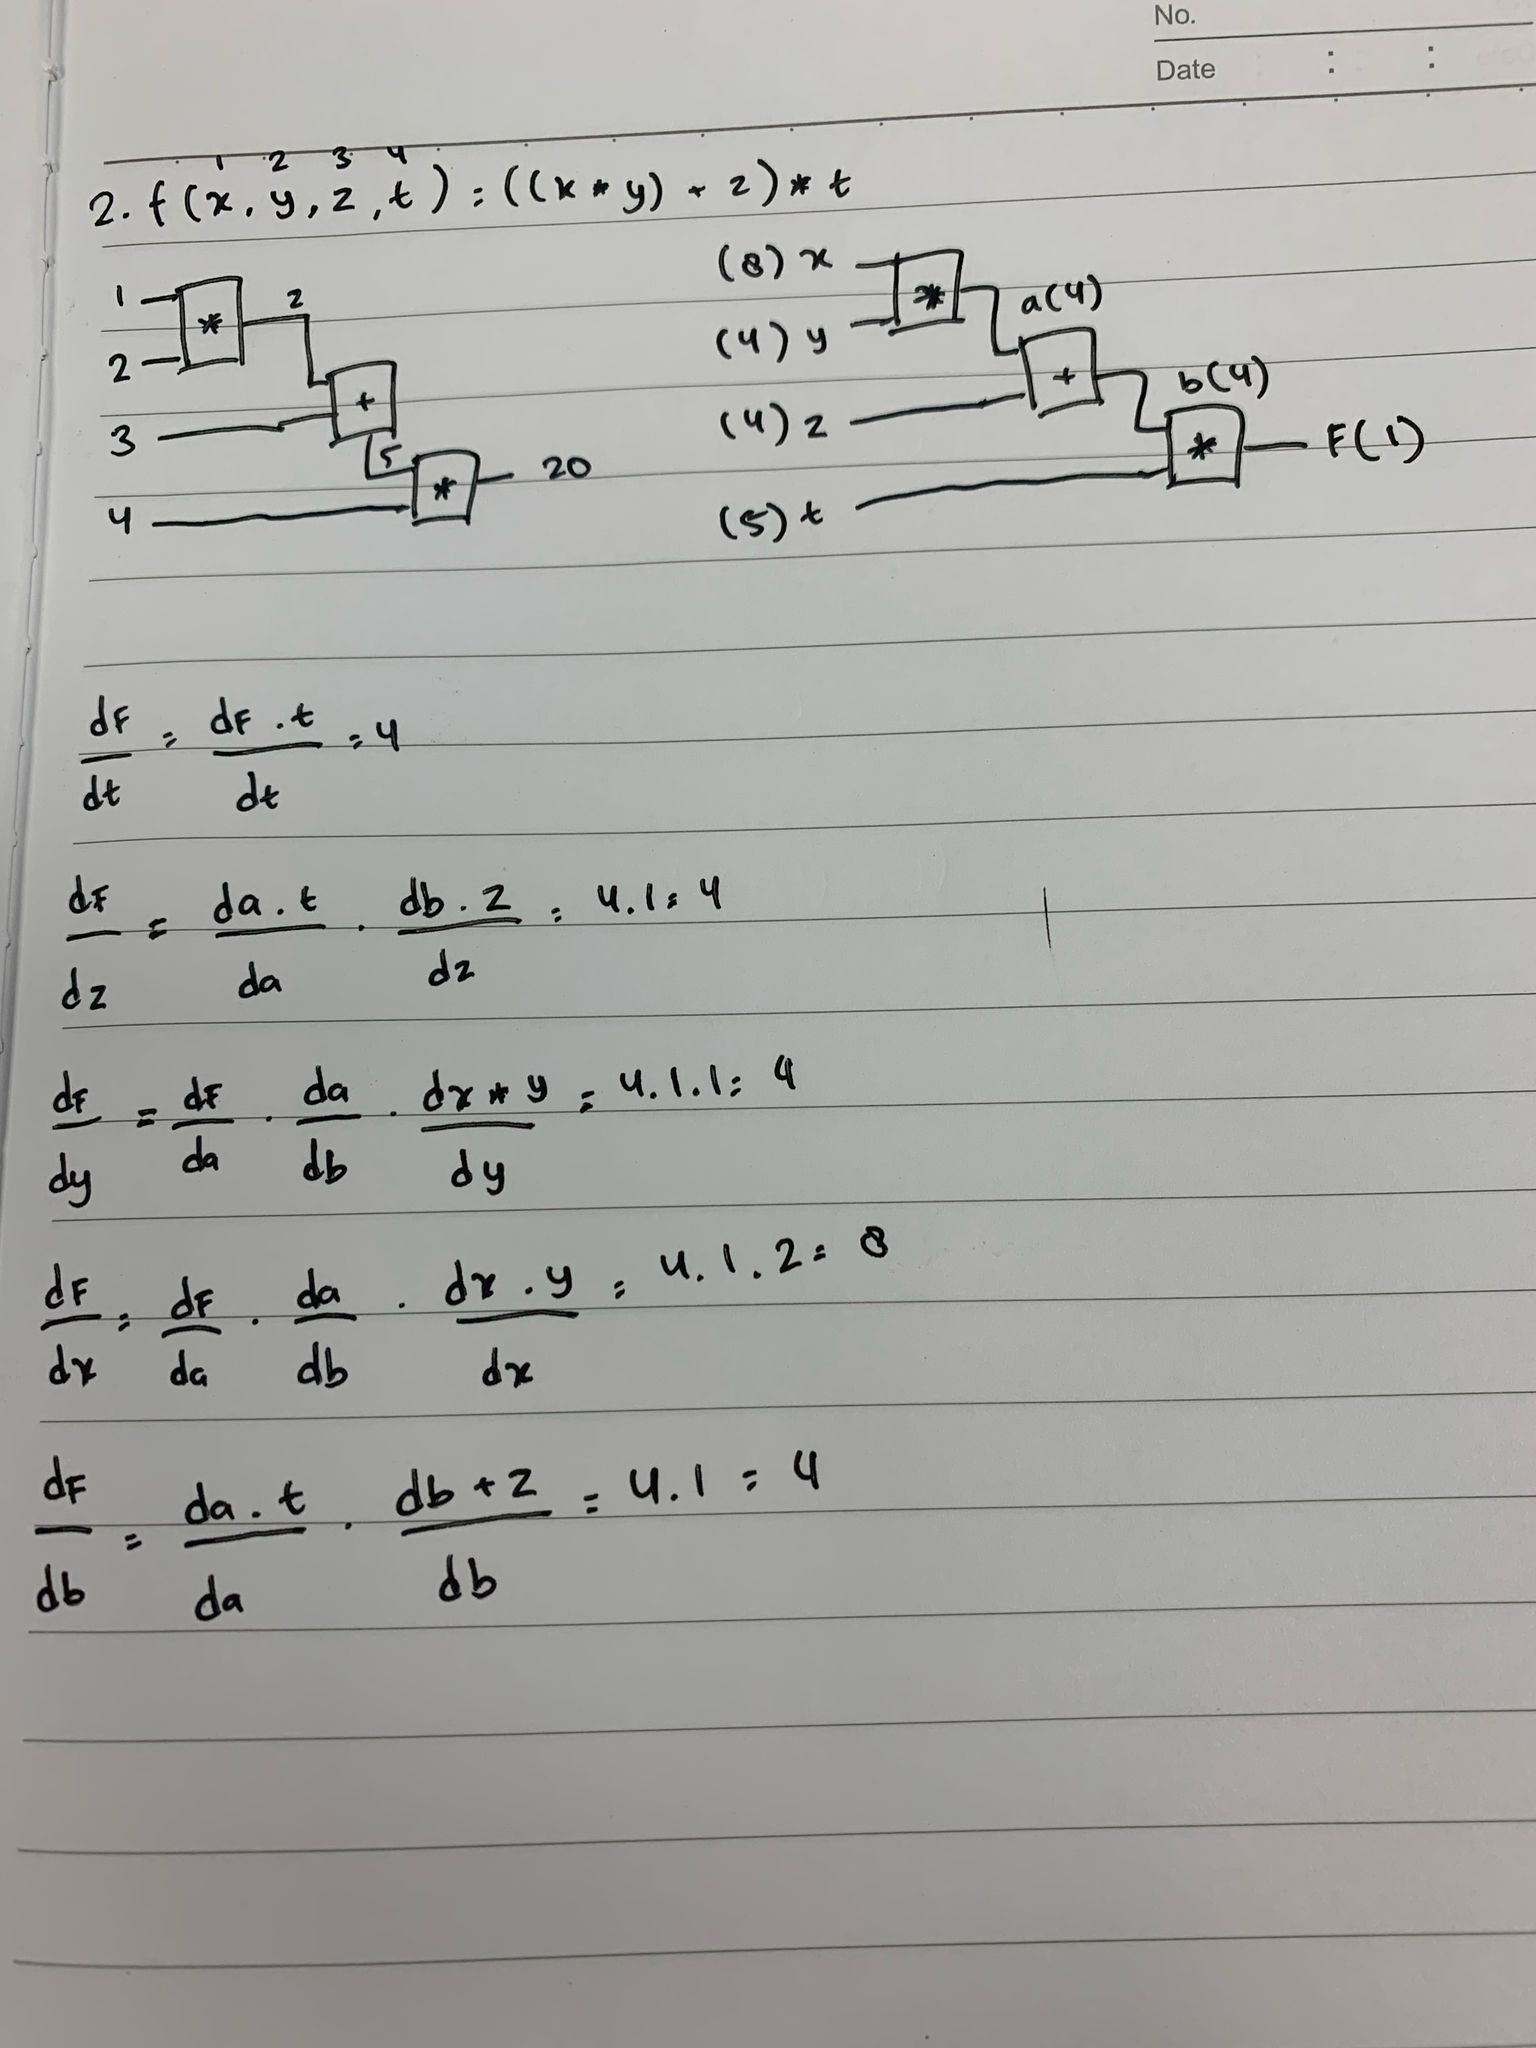 No.
Date : :
1 2 3 4
2. f(x, y, z, t) = ((x * y) + z) * t
1 * 2
2
3 +
5
4 * 20
(8) x * a(4)
(4) y
(4) z + b(4)
* F(1)
(5) t
dF/dt = dF . t/dt = 4
dF/dz = da . t/da . db . z/dz = 4.1 = 4
dF/dy = dF/da . da/db . dx * y/dy = 4.1.1 = 4
dF/dx = dF/da . da/db . dx . y/dx = 4.1.2 = 8
dF/db = da . t/da . db + z/db = 4.1 = 4